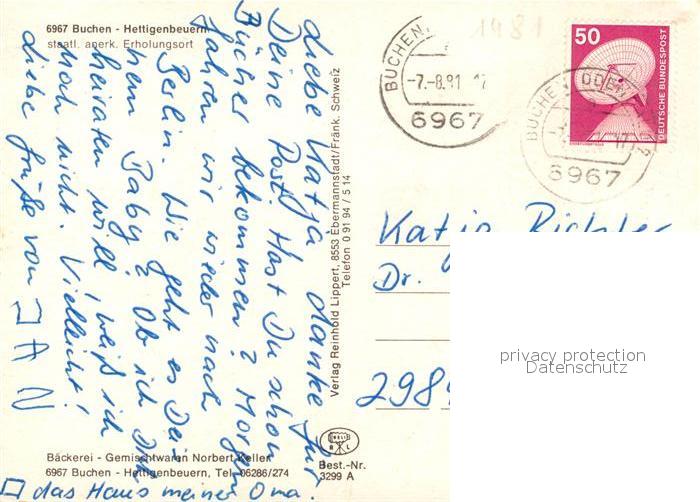 6967 Buchen - Hettigenbeuern
staatl. anerk. Erholungsort
Liebe Katja, danke für
Deine Post! Hast Du schon
Bücher bekommen? Morgen
fahren wir wieder nach
Berlin. Wie geht es Dei-
nem Baby? Ob ich Dich
heiraten will, weiß ich
noch nicht. Vielleicht!
Liebe Grüße von JAN
Bäckerei - Gemischtwaren Norbert Keller
6967 Buchen - Hettigenbeuern, Tel. 06286/274
das Haus meiner Oma.
Verlag Reinhold Lippert, 8553 Ebermannstadt/Fränk. Schweiz
Telefon 0 91 94 / 5 14
Best.-Nr.
3299 A
1981
BUCHEN,
-7.-8.81 17
6967
50
DEUTSCHE BUNDESPOST
BUCHEN ODENW
6967
Katja Richter
Dr.
298
privacy protection
Datenschutz